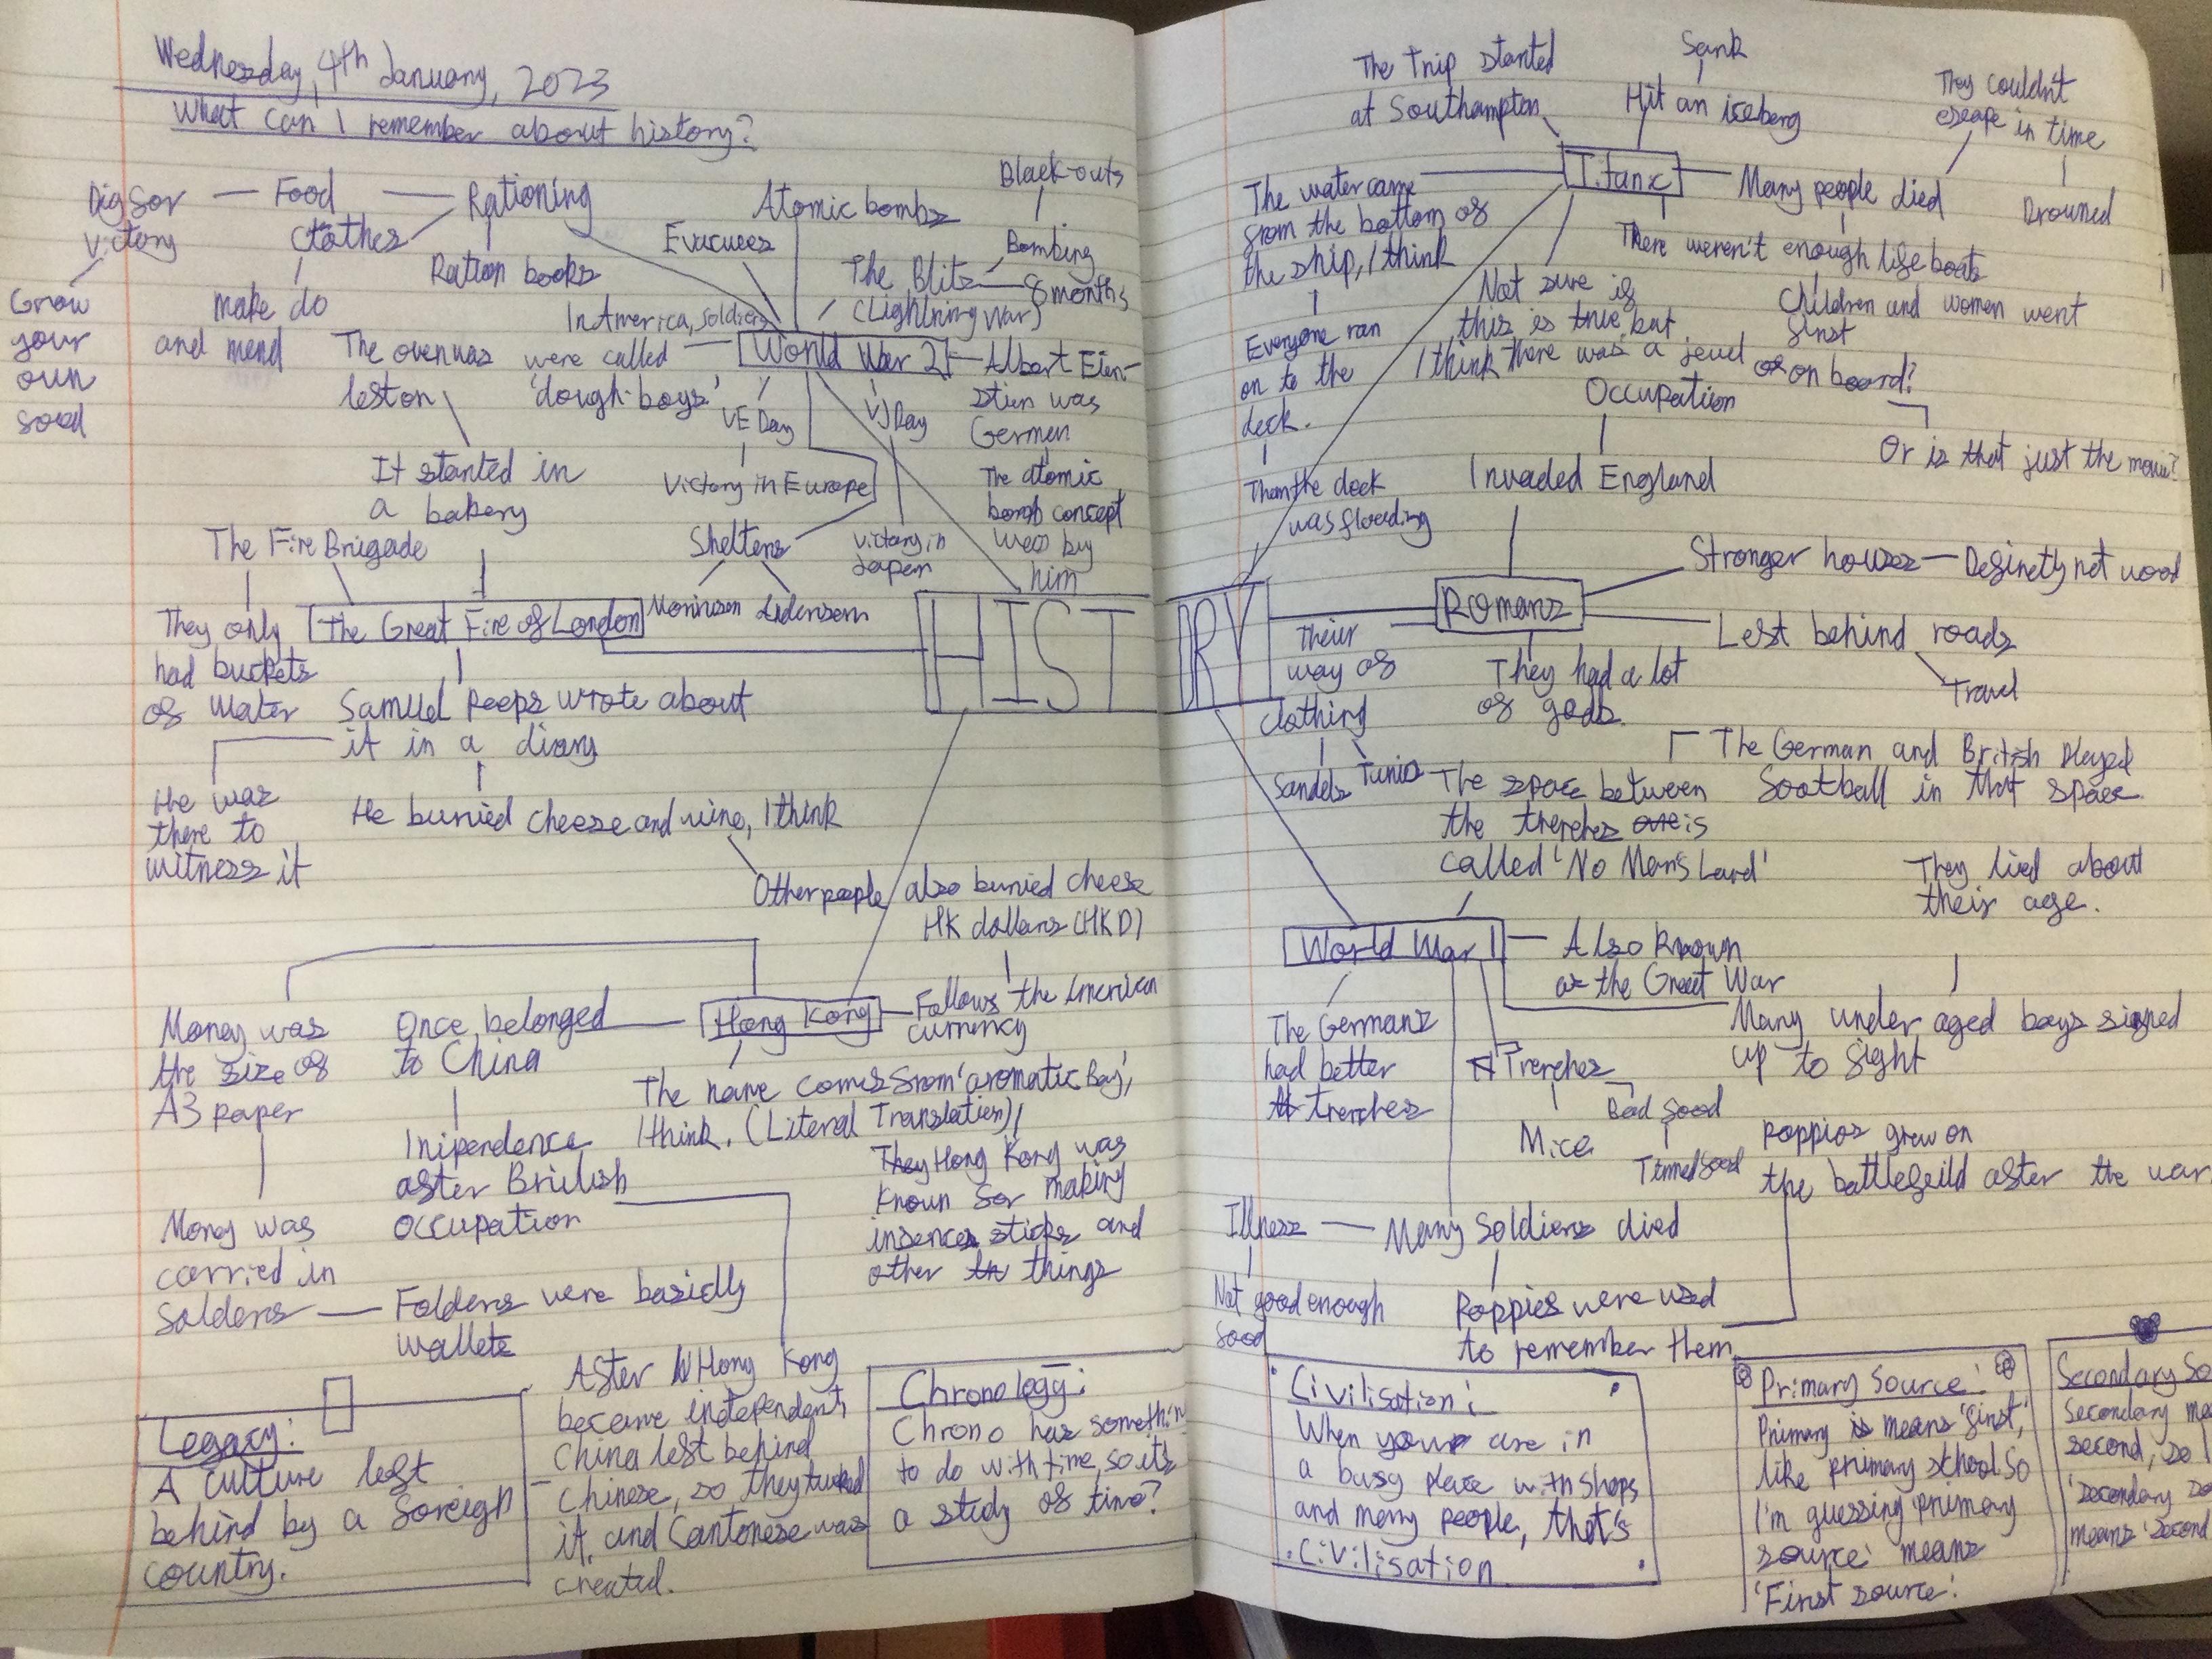 Wednesday, 4th January, 2023
What can I remember about history?
Dig for
victory
Food
clothes
Rationing
Ration books
Grow
your
own
food
make do
and mend
Evacuees
Atomic bombs
Black-outs
Bombing
The Blitz
(Lightning War)
8 months
In America, soldiers
were called
'dough-boys'
World War 2
Albert Eien-
stien was
German
The atomic
bomb concept
was by
him
VE Day
Victory in Europe
VJ Day
victory in
Japan
Shelters
Morrisson
Anderson
The oven was
left on
It started in
a bakery
The Fire Brigade
They only
had buckets
of water
The Great Fire of London
Samuel Peeps wrote about
it in a diary
He was
there to
witness it
He buried cheese and wine, I think
Other people also buried cheese
HISTORY
HK dollars (HKD)
Follows the American
currency
Hong Kong
Money was
the size of
A3 paper
Once belonged
to China
The name comes from 'aromatic Bay',
I think. (Literal Translation)
They Hong Kong was
known for making
insences sticks and
other th things
Inipendence
after British
occupation
Money was
carried in
folders
Folders were basiclly
wallets
After Hong Kong
became independent,
China left behind
Chinese, so they tweaked
it, and Cantonese was
created.
Legacy:
A culture left
behind by a foreign
country.
Chronology:
Chrono has somethin
to do with time, so it's
a study of time?
The trip started
at Southampton
Sank
Hit an iceberg
They couldn't
escape in time
Drowned
Titanic
Many people died
The water came
from the bottom of
the ship, I think
Everyone ran
on to the
deck.
Then the deck
was flooding
There weren't enough lifeboats
Children and women went
first
Not sure if
this is true, but
I think there was a jewel of on board?
Or is that just the movie?
Occupation
Invaded England
Romans
Stronger houses
Definetly not wood
Left behind roads
Travel
Their
way of
clothing
Sandels
Tunics
They had a lot
of gods.
The German and British played
football in that space
The space between
the trenches are is
called 'No Man's Land'
They lied about
their age.
World War 1
Also known
as the Great War
Many under aged boys signed
up to fight
The Germans
had better
trenches
Trenches
Mice
Bad food
Tinned food
Poppies grew on
the battlefeild after the war
Illness
Many soldiers died
Not good enough
food
Poppies were used
to remember them
Civilisation:
When your are in
a busy place with shops
and many people, that's
civilisation
Primary Source:
Primary is means 'first,'
like primary school. So
I'm guessing 'primary
source' means
'First source'.
Secondary So
Secondary me
second, so I
'secondary so
means 'second